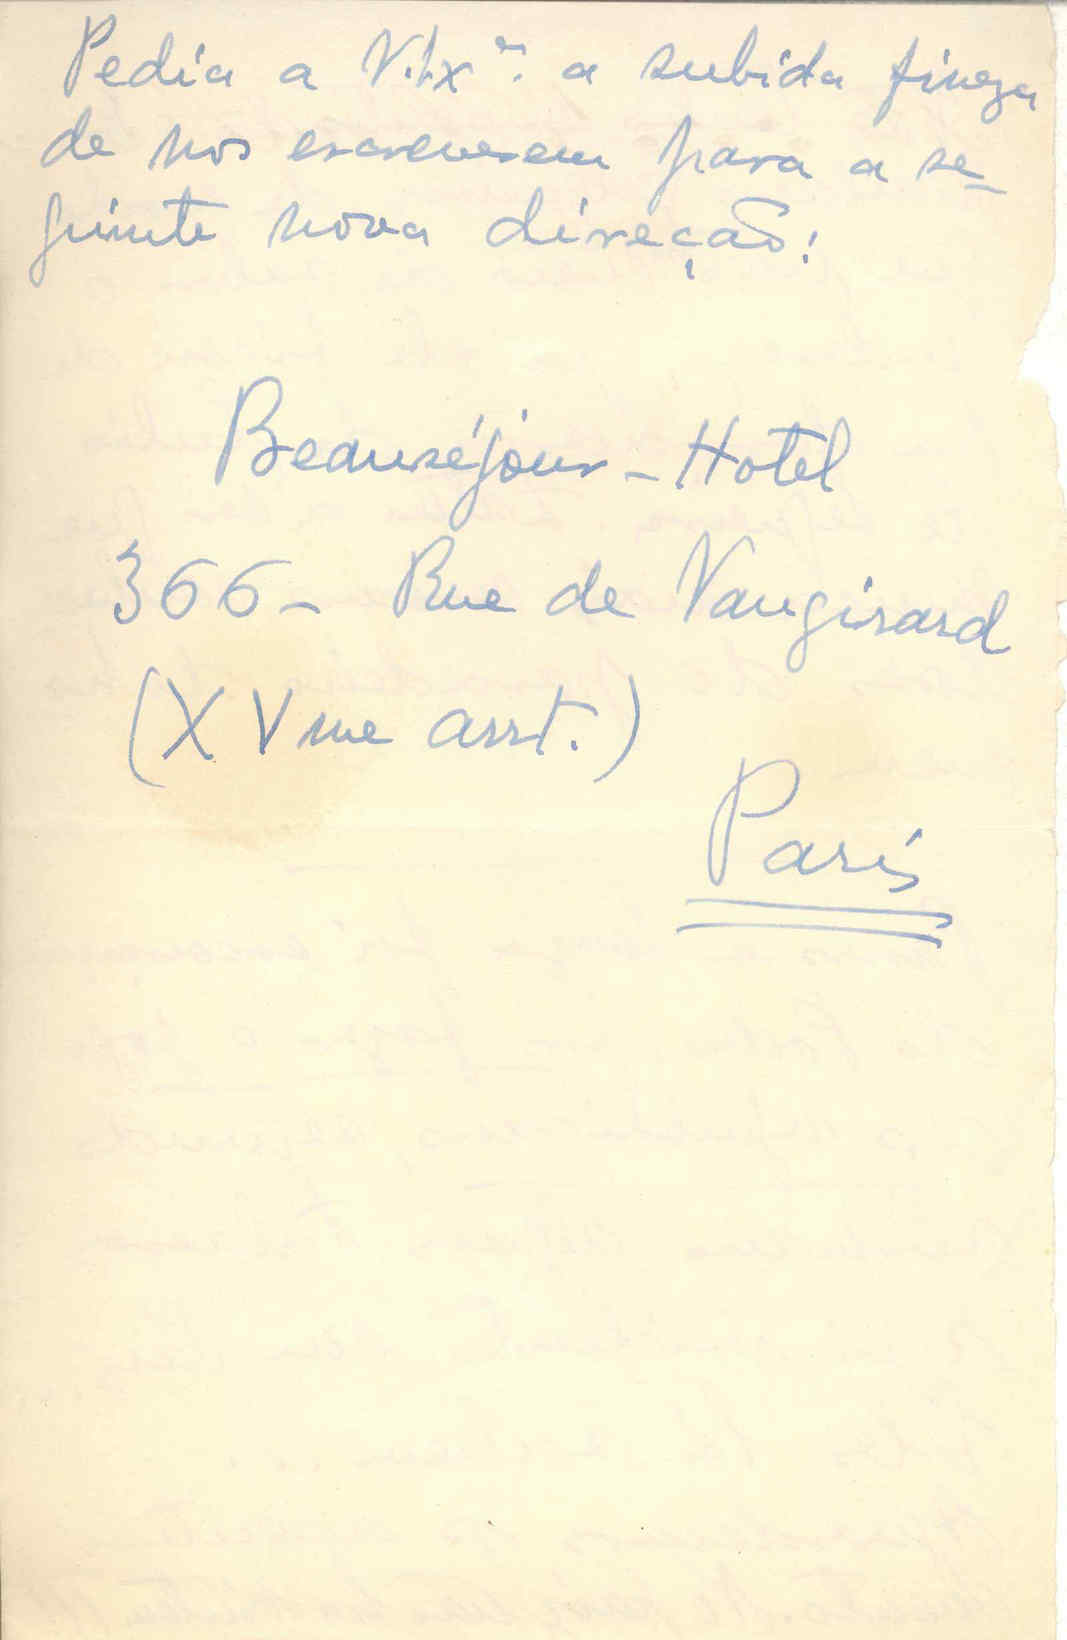 Pedia a V. Ex.ªˢ a subida fineza
de nos escreverem para a se-
guinte nova direção:
Beauséjour - Hotel
366 - Rue de Vaugirard
(XVme arrt.)
Paris